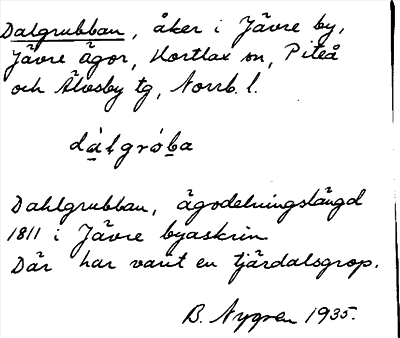 Dalgrubban, åker i Jävre by,
Jävre ägor, Hortlax sn, Piteå
och Älvsby tg, Norrb. l.
dàlgróba
Dahlgrubban, ägodelningslängd
1811 i Jävre byaskrin.
Där har varit en tjärdalsgrop.
B. Nygren 1935.